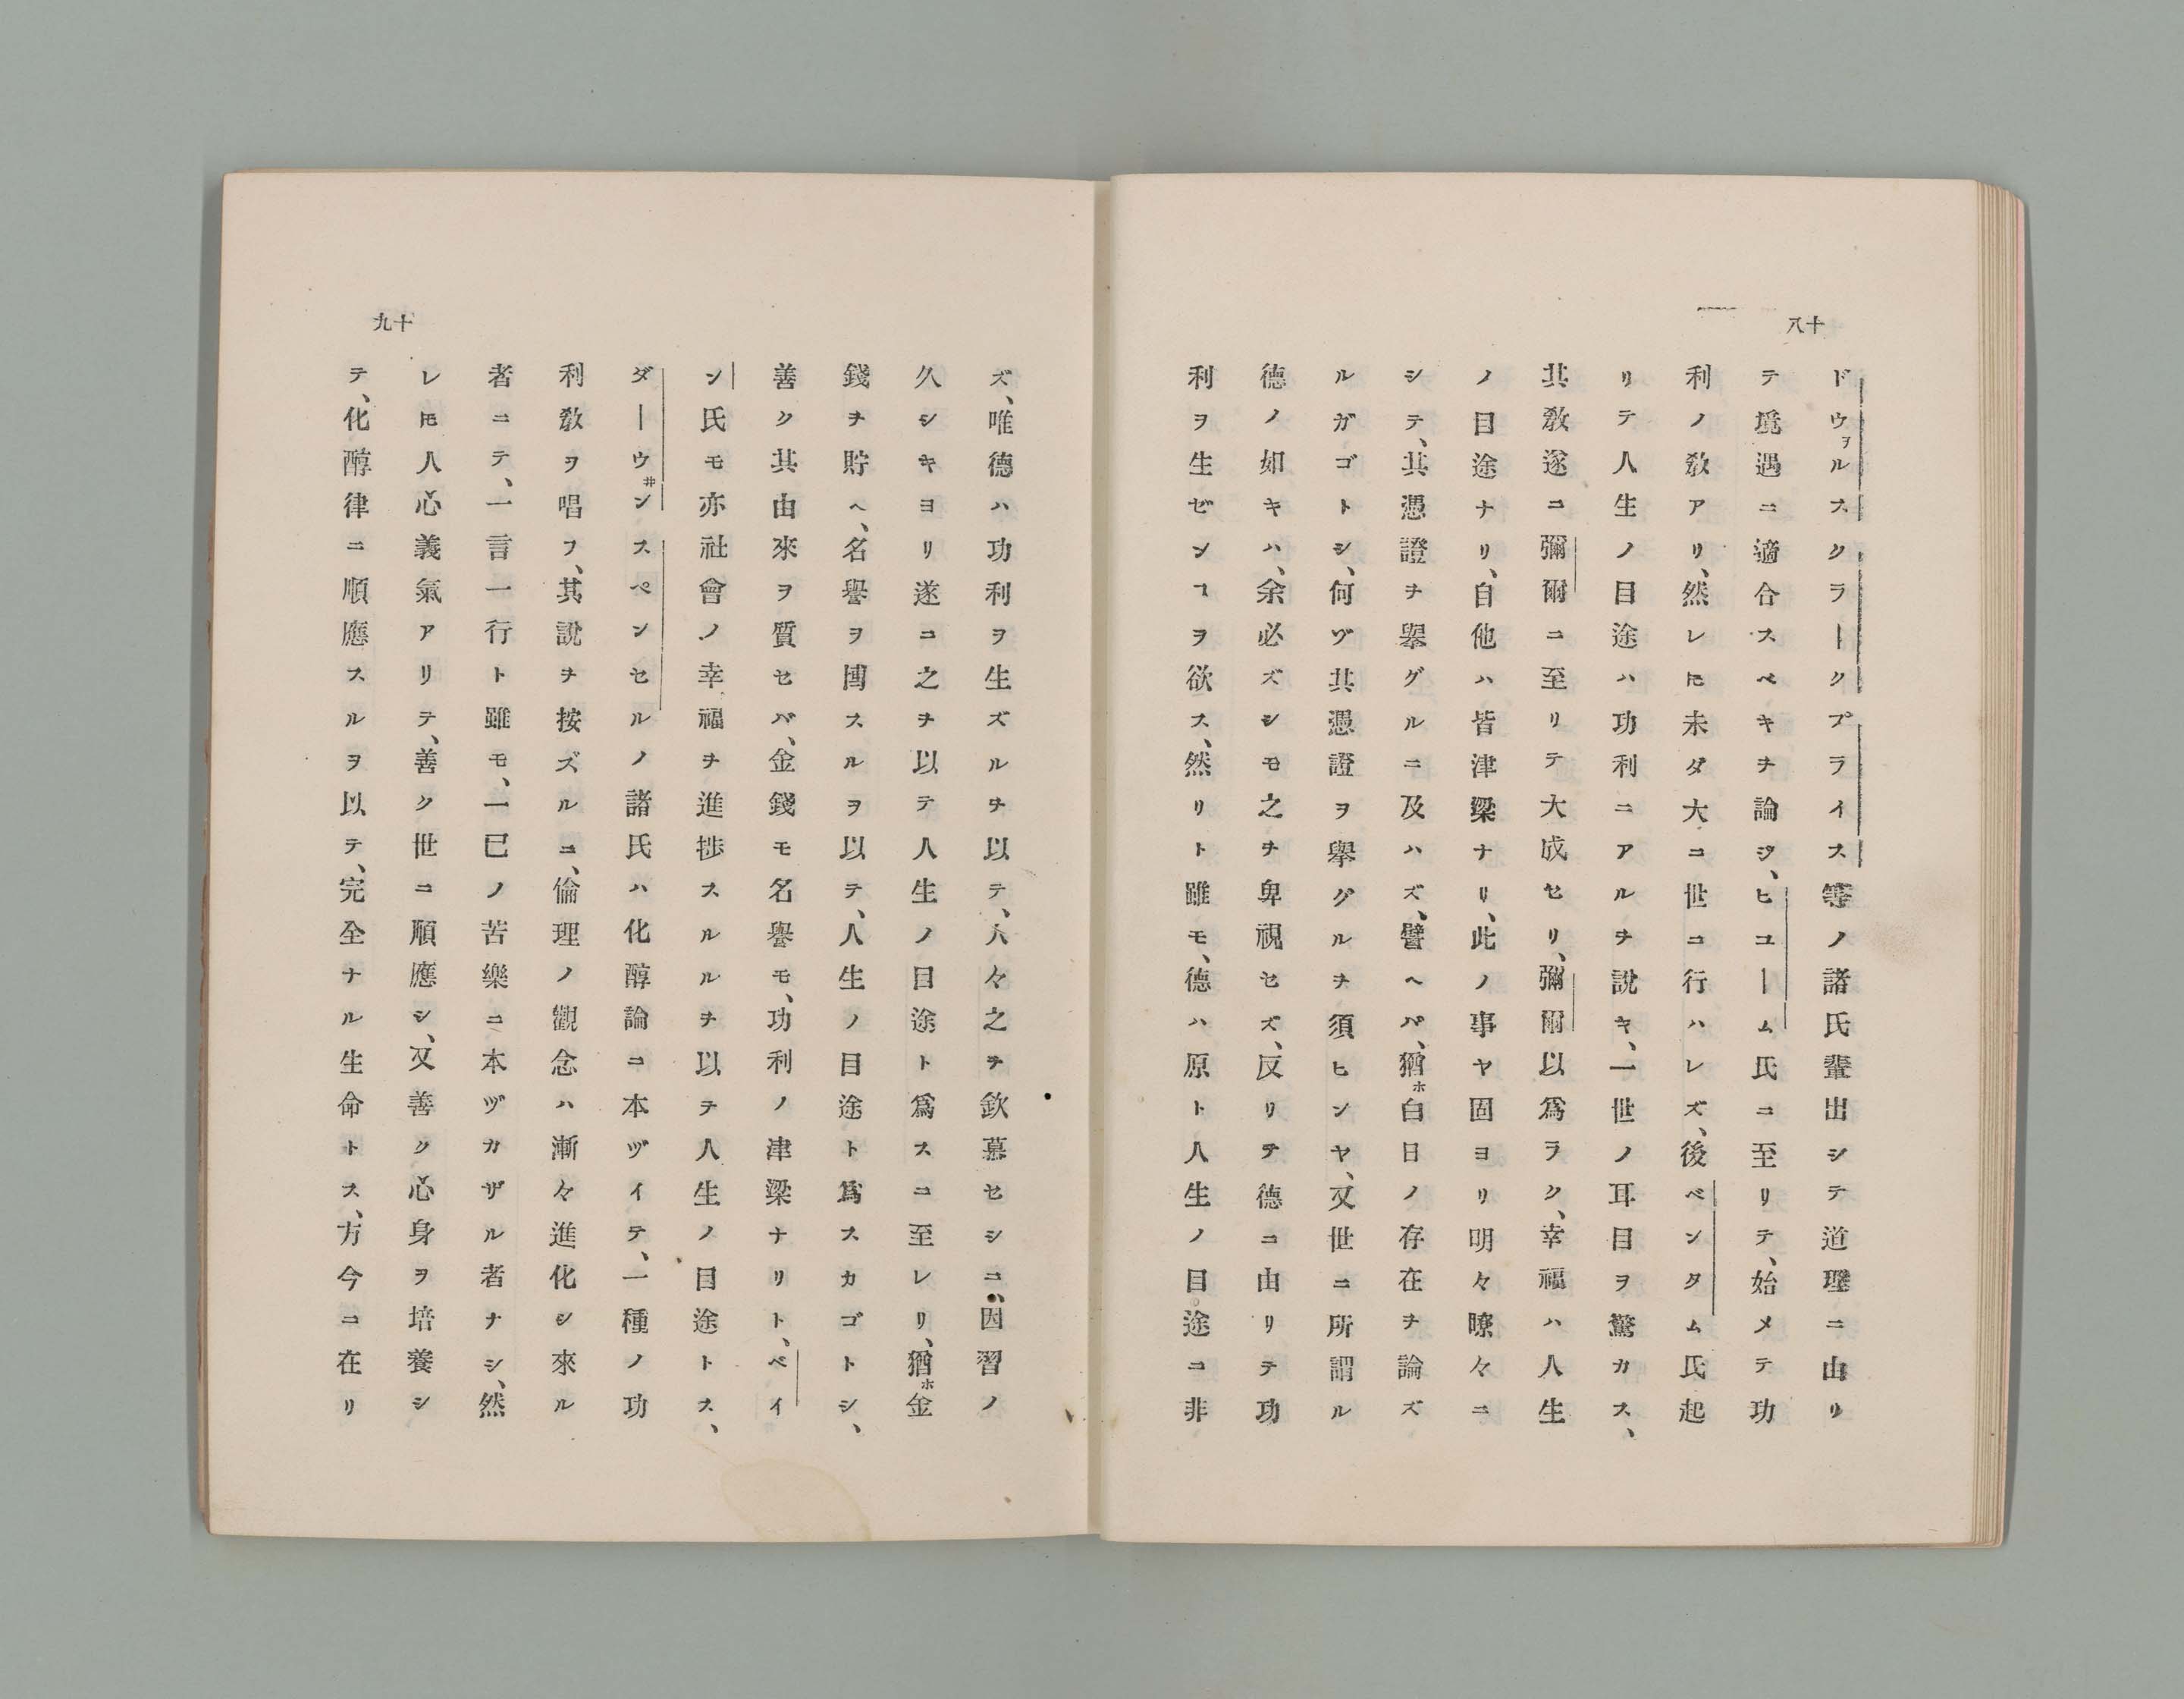 十八
ドウヲルスクラークプライス等ノ諸氏輩出シテ道理ニ由リ
テ境遇ニ適合スベキヲ論ジ、ヒユーム氏ニ至リテ、始メテ功
利ノ教アリ、然レ𪜈未ダ大ニ世ニ行ハレズ、後ベンタム氏起
リテ人生ノ目途ハ功利ニアルヲ説キ、一世ノ耳目ヲ驚カス、
其教遂ニ彌爾ニ至リテ大成セリ、彌爾以爲ラク、幸福ハ人生
ノ目途ナリ、自他ハ皆津梁ナリ、此ノ事ヤ固ヨリ明々瞭々ニ
シテ、其憑證ヲ擧グルニ及ハズ、譬ヘバ、猶ホ白日ノ存在ヲ論ズ
ルガゴトシ、何ヅ其憑證ヲ擧グルヲ須ヒンヤ、又世ニ所謂ル
德ノ如キハ、余必ズシモ之ヲ卑視セズ、反リテ德ニ由リテ功
利ヲ生ゼンヿヲ欲ス、然リト雖モ、德ハ原ト人生ノ目途ニ非
ズ、唯德ハ功利ヲ生ズルヲ以テ、人々之ヲ欽慕セシニ、因習ノ
久シキヨリ遂ニ之ヲ以テ人生ノ目途ト爲スニ至レリ、猶ホ金
錢ヲ貯ヘ、名譽ヲ博スルヲ以テ、人生ノ目途ト爲スカゴトシ、
善ク其由來ヲ質セバ、金錢モ名譽モ、功利ノ津梁ナリト、ベイ
ン氏モ亦社會ノ幸福ヲ進捗スルルヲ以テ人生ノ目途トス、
ダーウ井ンスペンセルノ諸氏ハ化醇論ニ本ヅイテ、一種ノ功
利教ヲ唱フ、其説ヲ按ズルニ、倫理ノ觀念ハ漸々進化シ來ル
者ニテ、一言一行ト雖モ、一已ノ苦樂ニ本ヅカザル者ナシ、然
レ𪜈人心義氣アリテ、善ク世ニ順應シ、又善ク心身ヲ培養シ
テ、化醇律ニ順應スルヲ以テ、完全ナル生命トス、方今ニ在リ
十九